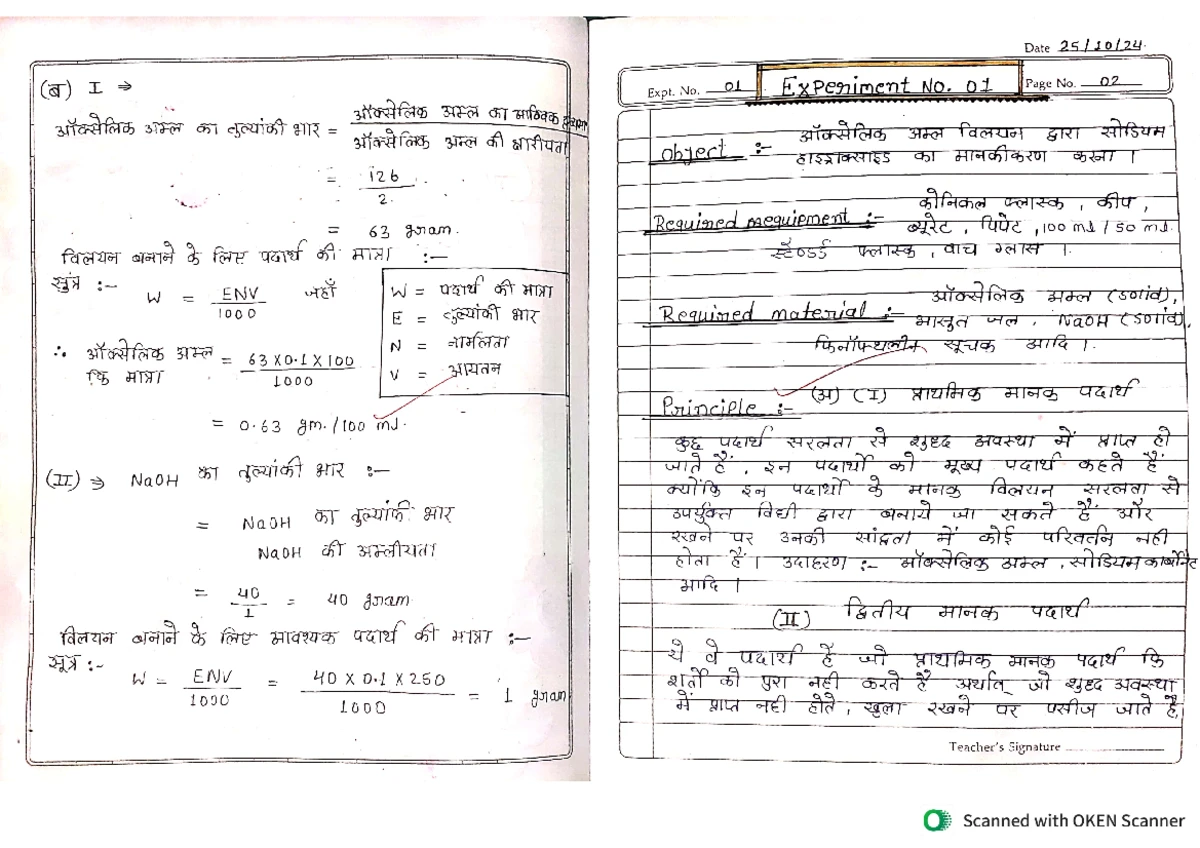 (ब) I ⇒
ऑक्सेलिक अम्ल का तुल्यांकी भार = ऑक्सेलिक अम्ल का आण्विक
ऑक्सेलिक अम्ल की क्षारीयता
= 126
2.
= 63 gram.
विलयन बनाने के लिए पदार्थ की मात्रा :-
सुत्र :- W = ENV जहाँ
1000
W = पदार्थ की मात्रा
E = तुल्यांकी भार
N = नार्मलता
V = आयतन
∴ ऑक्सेलिक अम्ल = 63 X 0.1 X 100
कि मात्रा 1000
= 0.63 gm. / 100 ml.
(II) ⇒ NaOH का तुल्यांकी भार :-
= NaOH का तुल्यांकी भार
NaOH की अम्लीयता
= 40 = 40 gram
1
विलयन बनाने के लिए आवश्यक पदार्थ की मात्रा :-
सूत्र :-
W = ENV = 40 X 0.1 X 250 = 1 gram
1000 1000
Date 25/10/24.
Expt. No. 01 Experiment No. 01 Page No. 02
object :- ऑक्सेलिक अम्ल विलयन द्वारा सोडियम
हाइड्राक्साइड का मानकीकरण करना ।
Required requiement :- कोनिकल फ्लास्क , कीप ,
ब्यूरेट , पिपेट , 100 ml / 50 ml.
स्टैण्डर्ड फ्लास्क , वाच ग्लास ।
Required material :- ऑक्सेलिक अम्ल (ठणांव),
आस्तुत जल , NaOH (ठणांव),
फिनॉफ्थलीन सूचक आदि ।
Principle :- (अ) (I) प्राथमिक मानक पदार्थ
कुछ पदार्थ सरलता से शुध्द अवस्था में प्राप्त हो
जाते हैं , इन पदार्थो को मूख्य पदार्थ कहते हैं
क्योंकि इन पदार्थो के मानक विलयन सरलता से
उपर्युक्त विधी द्वारा बनाये जा सकते हैं और
रखने पर उनकी सांद्रता में कोई परिवर्तन नही
होता हैं । उदाहरण :- ऑक्सेलिक अम्ल , सोडियम कार्बोनेट
आदि ।
(II) द्वितीय मानक पदार्थ
ये वे पदार्थ हैं जो प्राथमिक मानक पदार्थ कि
शर्तो को पुरा नही करते हैं अर्थात् जो शुध्द अवस्था
में प्राप्त नही होते , खुला रखने पर पसीज जाते है,
Teacher's Signature
Scanned with OKEN Scanner